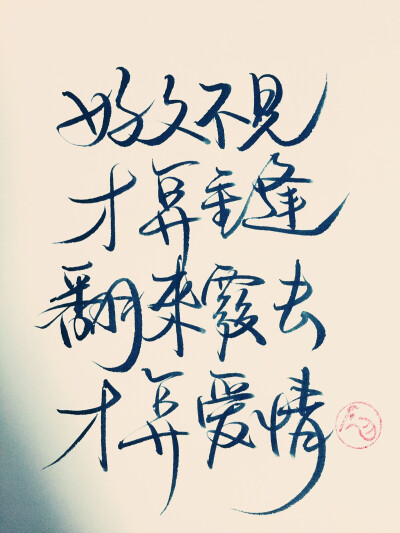 好久不见
才算重逢
翻来覆去
才算爱情